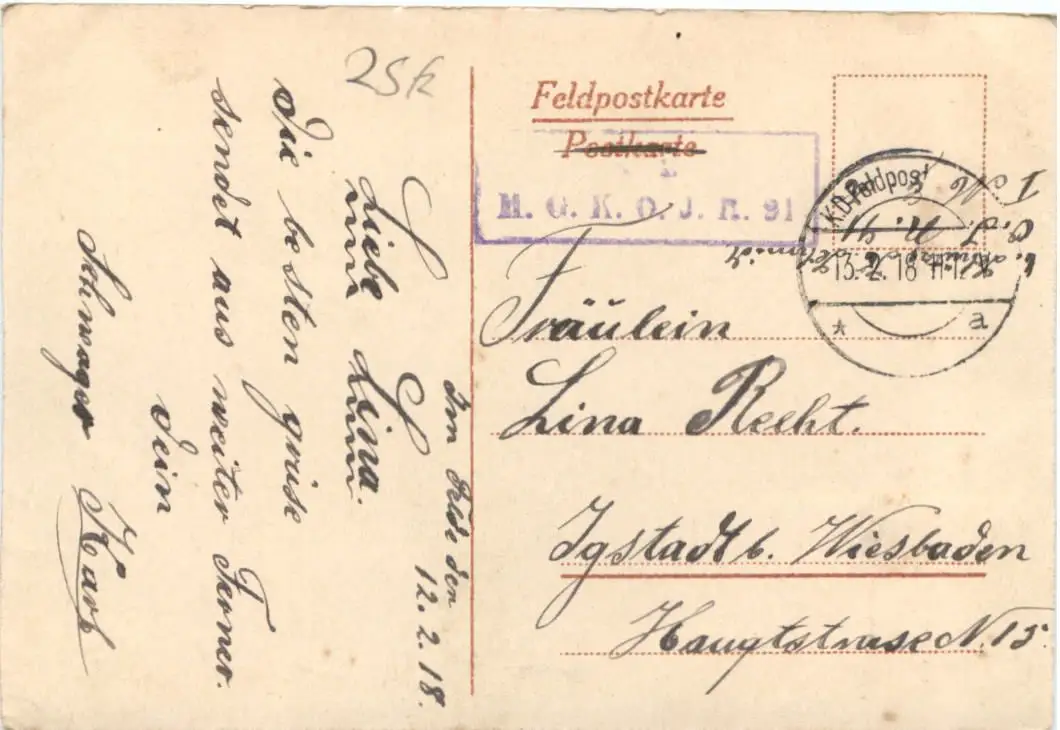 25 k
Feldpostkarte
Postkarte
M. G. K. O. J. R. 91
K.D. Feldpost
13.2.18 11-12 V
* a
Fräulein
Lina Recht.
Igstadt b. Wiesbaden
Hauptstrase N. 15
Im Felde den
12.2.18.
Liebe Lina.
Die besten grüse
sendet aus weiter Ferner.
dein
Schwager Karl